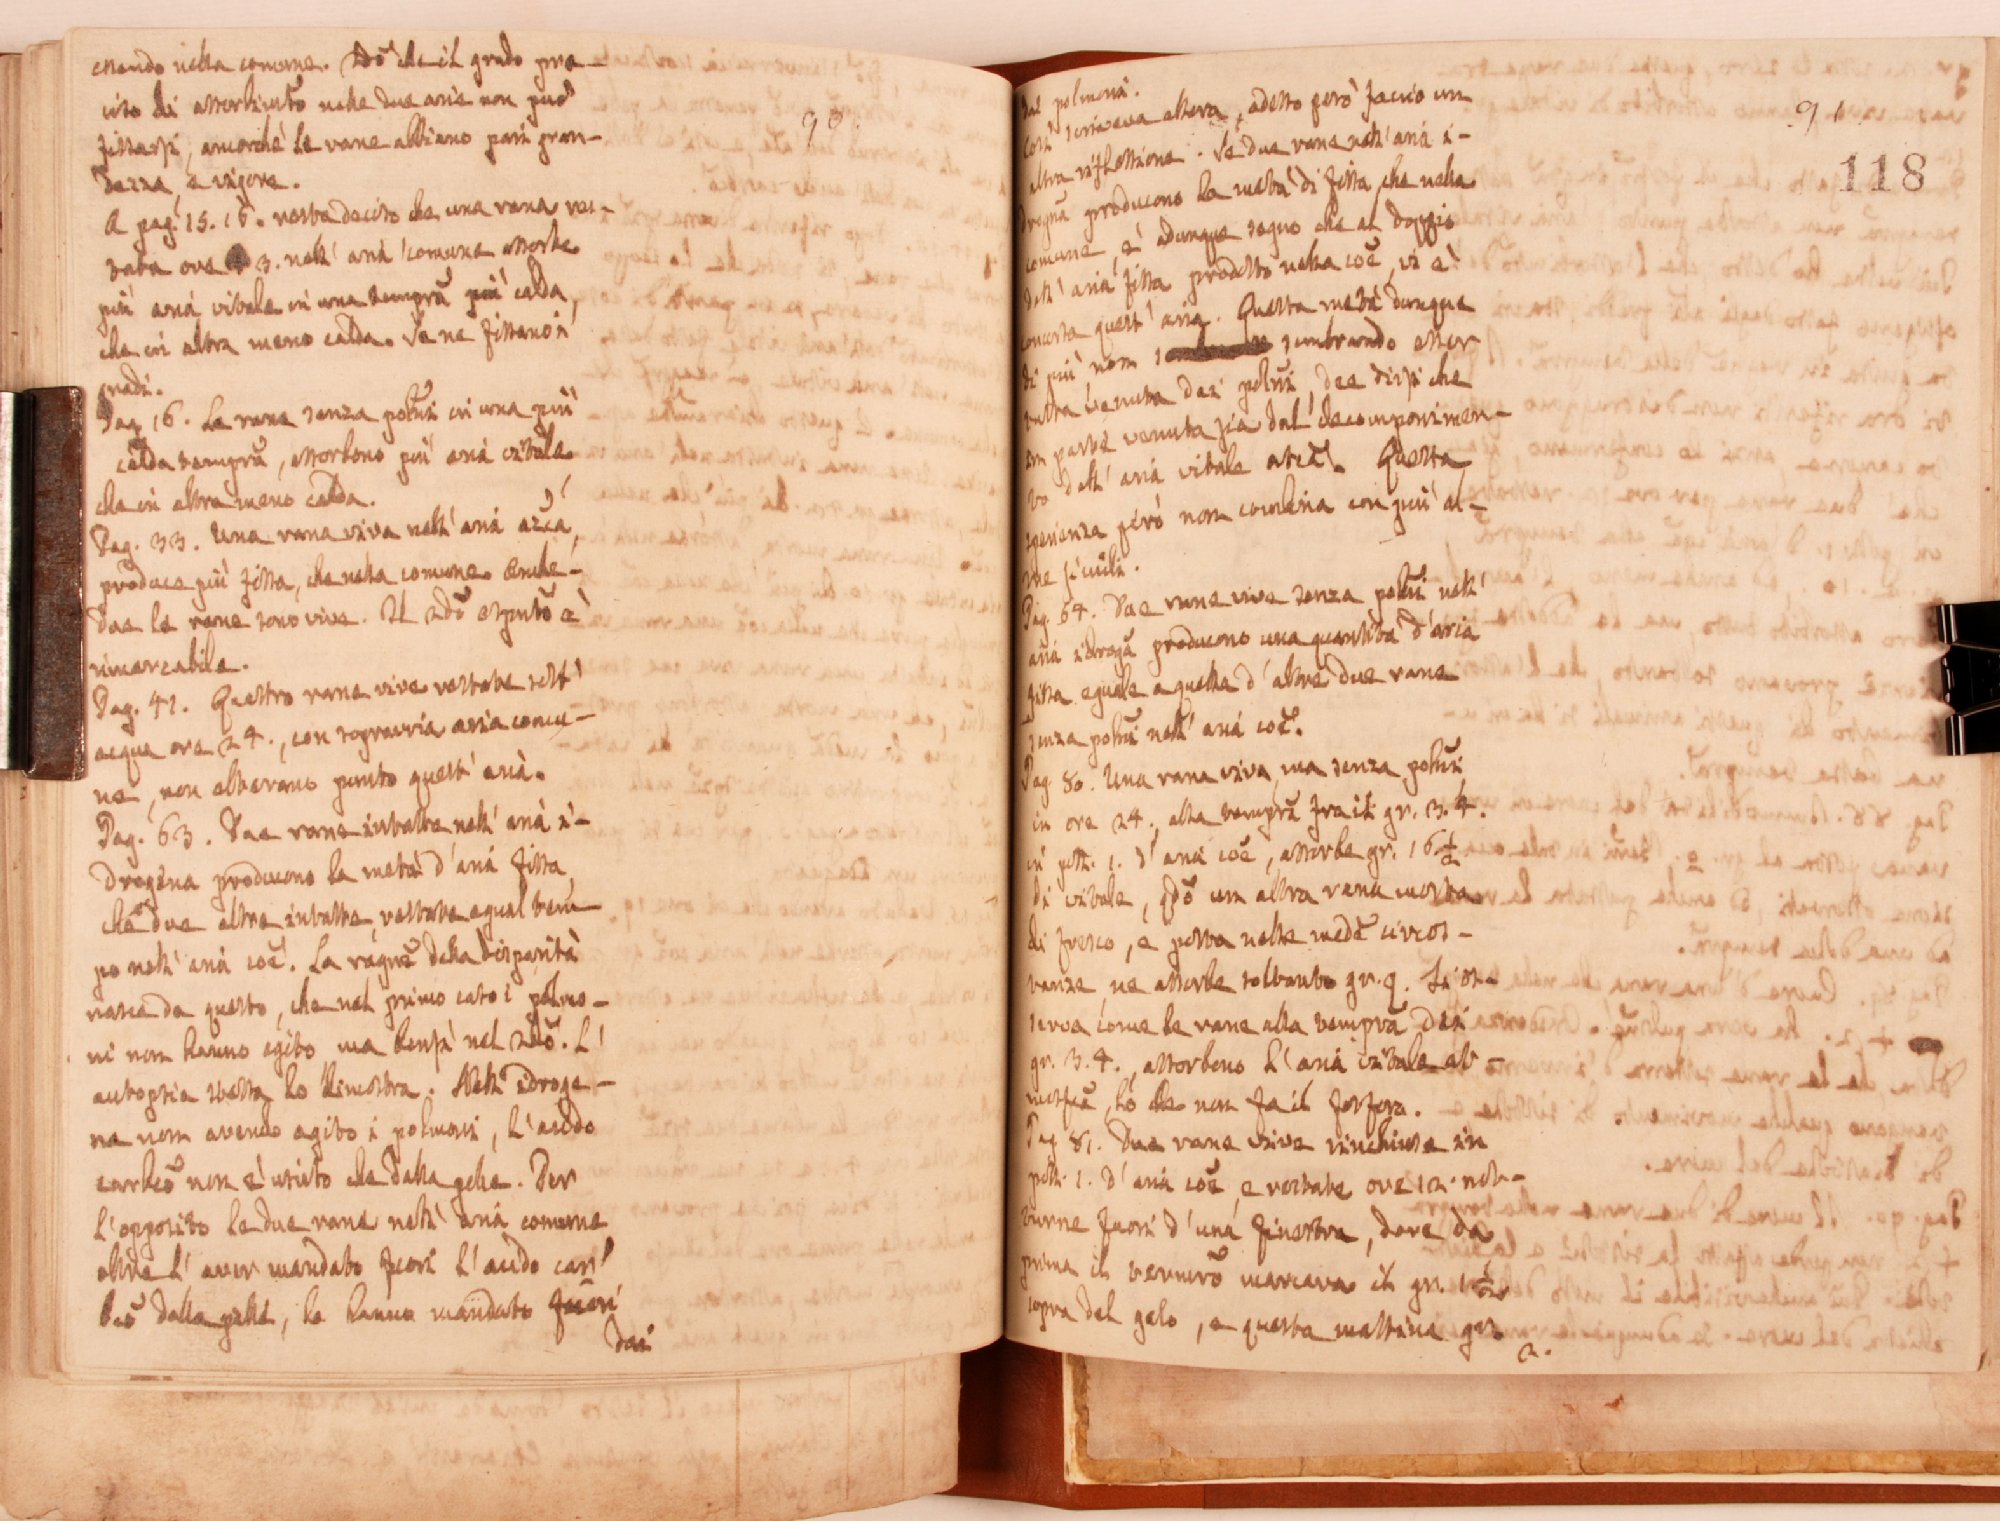 90.
essendo nella comune. Ddõ che il grado pre-
ciso di assorbimtõ nelle due arie non può
fissarsi, ancorchè le rane abbiano pari gran-
dezza, e vigore.
A pag. 15. 16. resta deciso che una rana res-
tata ore 3. nell' aria comune assorbe
più aria vitale in una tempra più calda,
che in altra meno calda. Se ne fissano i
gradi.
Pag. 16. Le rane senza polmi in una più
calda tempra, assorbono più aria vitale
che in altra meno calda.
Pag. 33. Una rana viva nell' aria azca,
produce più fissa, che nella comune. Anche-
due le rane sono vive. Il 2dõ esptõ è
rimarcabile.
Pag. 41. Quattro rane vive restate sott'
acqua ore 24., con sopravvia aria comu-
ne, non alterano punto quest' aria.
Pag. 63. Due rane intatte nell' aria i-
drogena producono la metà d' aria fissa
che due altre intatte, restate egual tem-
po nell' aria coẽ. La ragnẽ della disparità
nasce da questo, che nel primo caso i polmo-
ni non hanno agito ma bensì nel 2dõ. L'
autopsia stessa lo dimostra. Nell' idroge-
na non avendo agito i polmoni, l' acido
carbcõ non è uscito che dalla pelle. Per
l' opposito le due rane nell' aria comune
oltre l' aver mandato fuori l' acido car-
bcõ dalla pelle, lo hanno mandato fuori
dai
91.
118
dai polmoni.
Così scriveva allora, adesso però faccio un
altra riflessione. Se due rane nell' aria i-
drogna producono la metà di fissa, che nella
comune, è adunque segno che al doppio
dell' aria fissa prodotto nella coẽ, vi è
concorsa quest' aria. Questa metà dunque
di più non sembrando esser
tutta venuta dai polmi, dee dirsi che
in parte venuta sia dal decomponimen-
to dell' aria vitale atcã. Questa
sperienza però non combina con più al-
tre simili.
Pag. 64. Due rane vive senza polmi nell'
aria idrogã producono una quantità d' aria
fissa eguale a quella d' altre due rane
senza polmi nell' aria coẽ.
Pag. 80. Una rana viva, ma senza polmi
in ore 24., alla tempra fra il gr. 3. 4.
in poll. 1. d' aria coẽ, assorbe gr. 16 1/2
di vitale, qdõ un altra rana morta
di fresco, e posta nelle medẽ circos-
tanze, ne assorbe soltanto gr. 9. Si os-
serva come le rane alla tempra dei
gr. 3. 4., assorbono l' aria vitale at-
mosfcã, lo che non fa il fosforo.
Pag. 81. Due rane vive rinchiuse in
poll. 1. d' aria coẽ, e restate ore 12. not-
turne fuori d' una finestra, dove da
prima il termmrõ marcava il gr. 1 1/2
sopra del gelo, e questa mattina gr.
2.